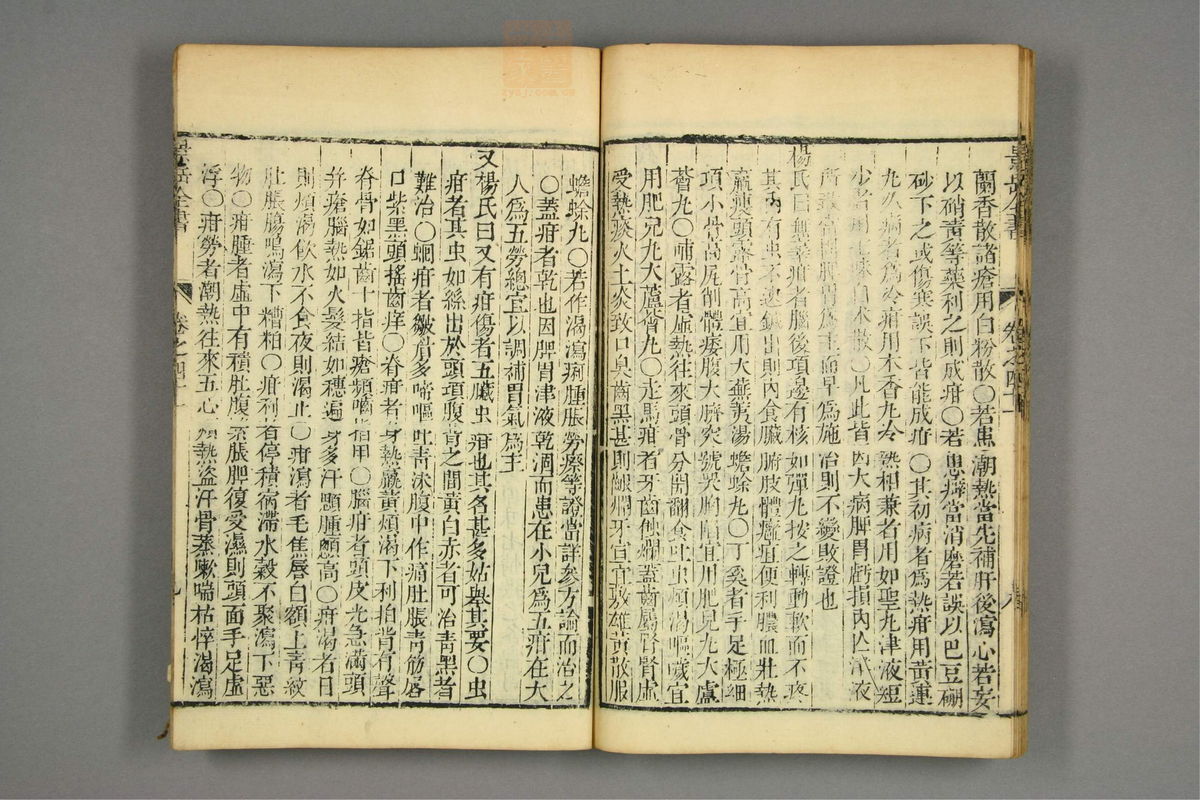 蘭香散諸瘡用白粉散〇若患潮熱當先補肝後瀉心若妄
以硝黃等藥利之則成疳〇若患癖當消磨若誤以巴豆硼
砂下之或傷寒誤下皆能成疳〇其初病者爲熱疳用黃連
丸久病者爲冷疳用木香丸冷熱相兼者用如聖丸津液短
少者用白术散〇凡此皆因大病脾胃虧損內亡津液
所致當固脾胃爲主而早爲施治則不變敗證也
楊氏曰無辜疳者腦後項邊有核如彈丸按之轉動軟而不疼
其內有虫不速鍼出則內食臟腑肢體癰疽便利膿血壯熱
羸瘦頭露骨高宜用大蕪荑湯蟾蜍丸〇丁奚者手足極細
項小骨高尻削體痿腹大臍突號哭胸陷宜用肥兒丸大盧
薈丸〇哺露者虛熱往來頭骨分開翻食吐虫煩渴嘔噦宜
用肥兒丸大蘆薈丸〇走馬疳者牙齒蝕爛蓋齒屬腎腎虛
受熱痰火上炎致口臭齒黑甚則齦爛牙宣宜敷雄黃散服
蟾蜍丸〇若作渴瀉痢腫脹勞瘵等證當詳參方論而治之
〇蓋疳者乾也因脾胃津液乾涸而患在小兒爲五疳在大
人爲五勞總宜以調補胃氣爲主
又楊氏曰又有疳傷者五臟虫疳也其名甚多姑舉其要〇虫
疳者其虫如絲出於頭項腹背之間黃白赤者可治靑黑者
難治〇蛔疳者皺眉多啼嘔吐靑沫腹中作痛肚脹靑筋唇
口紫黑頭搖齒痒〇脊疳者身熱羸黃煩渴下利拍背有聲
脊骨如鋸齒十指皆瘡頻嚙指甲〇腦疳者頭皮光急滿頭
并瘡腦熱如火髮結如穗遍身多汗顋腫顖高〇疳渴者日
則煩渴飮水不食夜則渴止〇疳瀉者毛焦唇白額上靑紋
肚脹腸鳴瀉下糟粕〇疳利者停積宿滯水穀不聚瀉下惡
物〇疳腫者虛中有積肚腹緊脹脾復受濕則頭面手足虛
浮〇疳勞者潮熱往來五心煩熱盜汗骨蒸嗽喘枯悴渴瀉
景岳全書
卷之四十一
八
景岳全書
卷之四十一
九